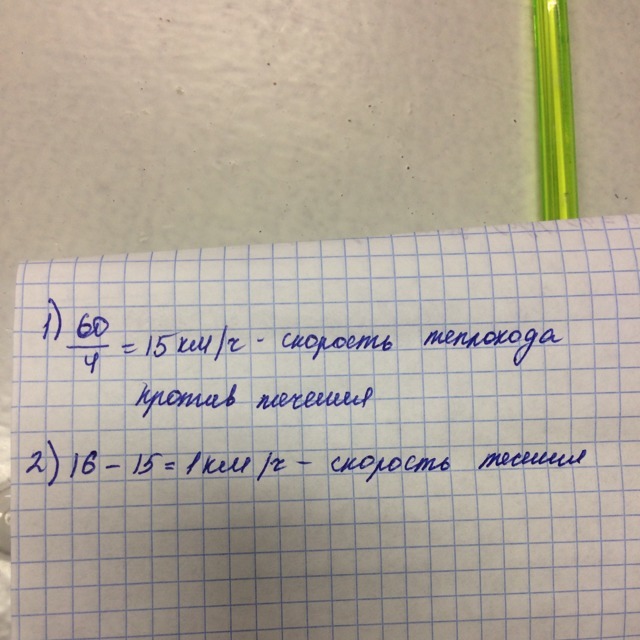 1) 60/4 = 15 км/ч - скорость теплохода
против течения
2) 16 - 15 = 1 км/ч - скорость течения